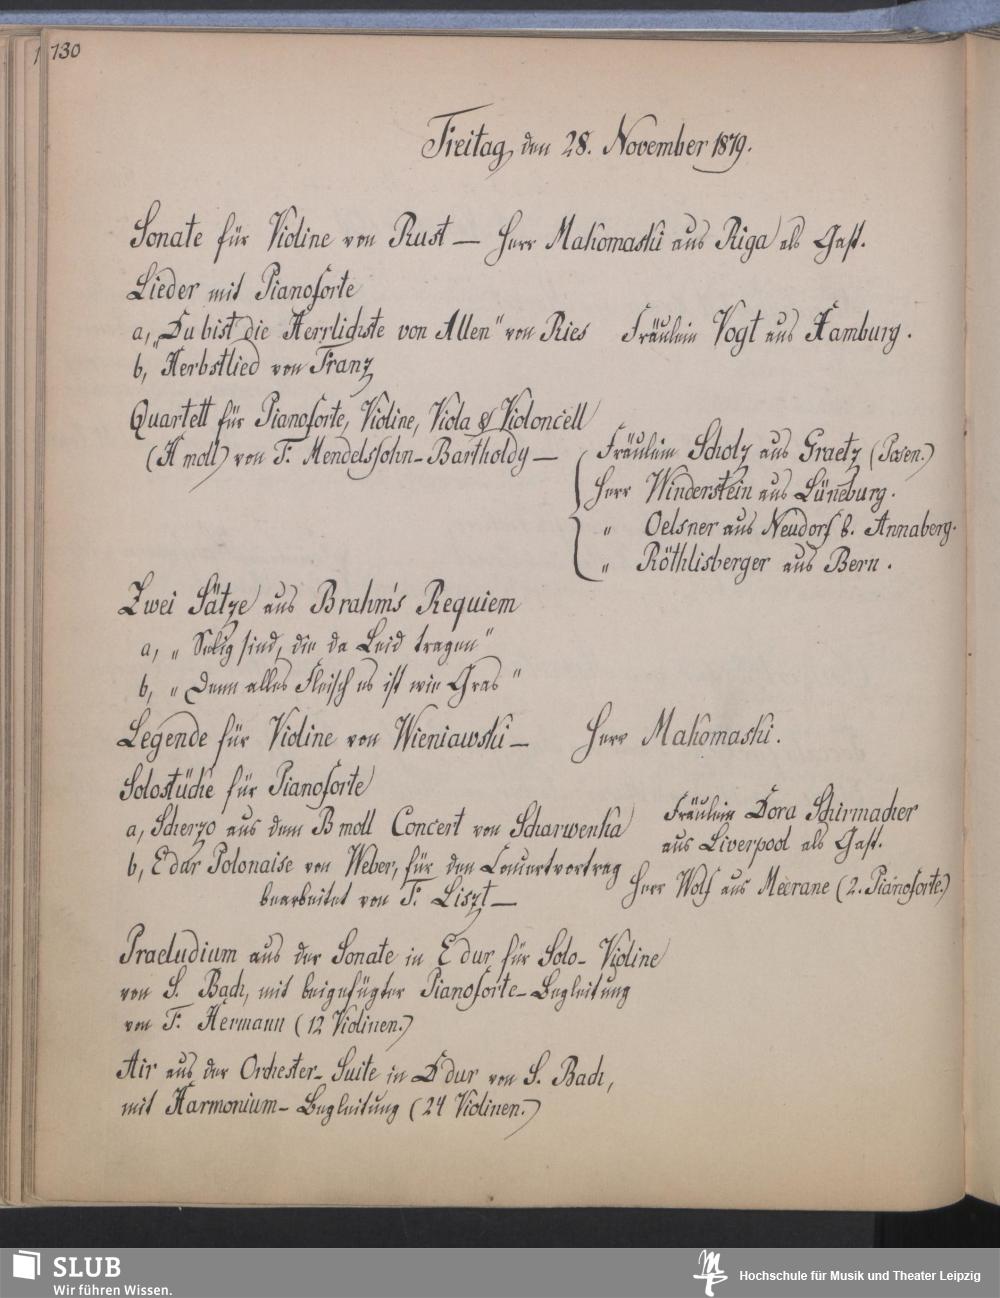 130
Freitag, den 28. November 1879.
Sonate für Violine von Rust — Herr Makomaski aus Riga als Gast.
Lieder mit Pianoforte
a, „Du bist die Herrlichste von Allen" von Ries Fräulein Vogt aus Hamburg.
b, Herbstlied von Franz
Quartett für Pianoforte, Violine, Viola & Violoncell
(H moll) von F. Mendelssohn-Bartholdy —
Fräulein Scholz aus Graetz (Posen.)
Herr Winderstein aus Lüneburg.
„ Oelsner aus Neudorf b. Annaberg.
„ Röthlisberger aus Bern.
Zwei Sätze aus Brahm's Requiem
a, „Selig sind, die da Leid tragen"
b, „Denn alles Fleisch es ist wie Gras"
Legende für Violine von Wieniawski — Herr Makomaski.
Solostücke für Pianoforte
a, Scherzo aus dem B moll Concert von Scharwenka
b, E dur Polonaise von Weber, für den Concertvortrag
bearbeitet von F. Liszt —
Fräulein Dora Schirmacher
aus Liverpool als Gast.
Herr Wolf aus Meerane (2. Pianoforte.)
Praeludium aus der Sonate in E dur für Solo-Violine
von S. Bach, mit beigefügter Pianoforte-Begleitung
von F. Hermann (12 Violinen.)
Air aus der Orchester-Suite in D dur von S. Bach,
mit Harmonium-Begleitung (24 Violinen.)
SLUB
Wir führen Wissen.
Hochschule für Musik und Theater Leipzig